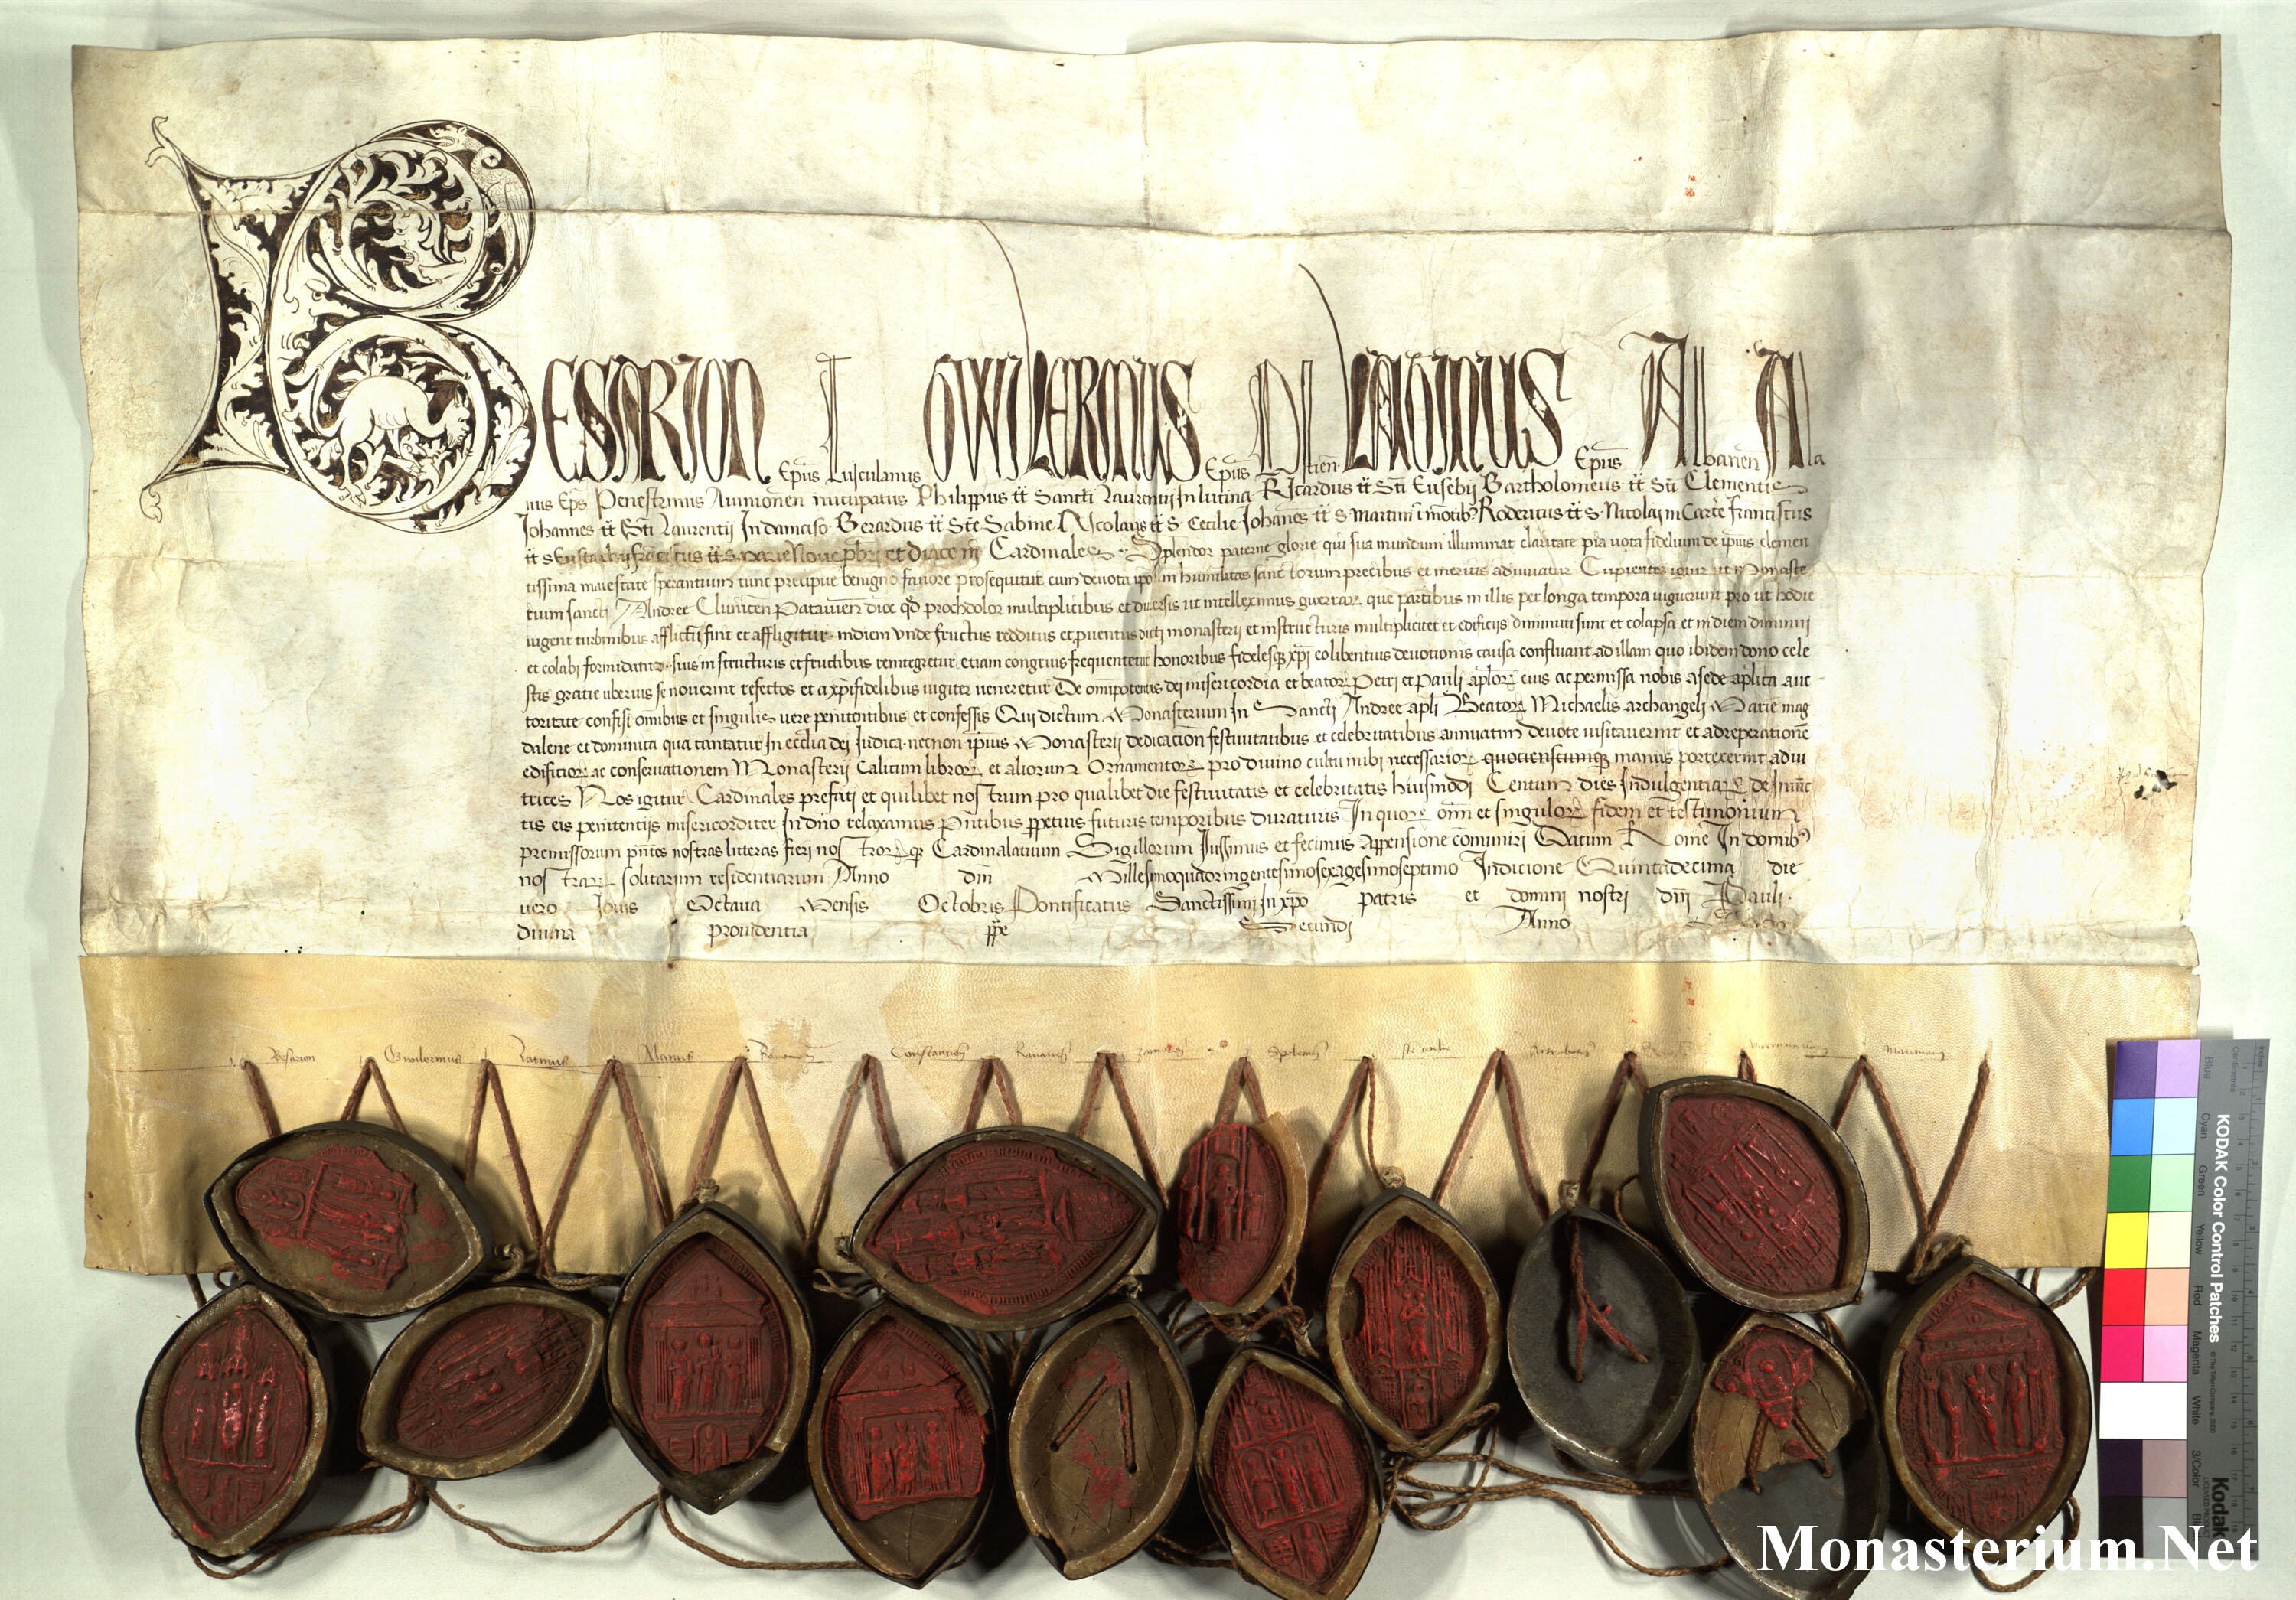 BESARION Epūs Tusculanus GWILERMUS Epūs Ostien LATINUS Epūs Albanen Ala
nus Eps Penestrinus Auinionen nūcupatus Philippus tt Sancti Laurentij In lucina Ricardus tt Sti Eusebij Bartholomeus tt Sti Clementis
Johannes tt Sti Laurentij In damaso Berardus tt Ste Sabine Nicolaus tt S Cecilie Johanes tt S Martini ī mōtibꝫ Rodericus tt S Nicolaij in Carcere Franciscus
tt S Eustachij franciscus tt S marie Noue pbri et diaconi Cardinales Splendor paterne glorie qui sua mundum illuminat claritate pia uota fidelium de ipius clemen
tissima maiestate sperantium tunc precipue benigno fauore prosequitur cum deuota ipo₄ humilitas sanctorum precibus et meritis adiuuatur Cupientes igitur ut Monaste
rium sancti Andree Cluniceñ Patauieñ dioc qd prochdolor multiplicibus et diuersis ut intelleximus gwerrar₄ que partibus in illis per longa tempora uiguerunt pro ut hodie
uigent turbinibus afflictū sint et affligitur indiem vnde fructus redditus et puentus dicti monasterij et in structuris multipliciter et edificijs diminuti sunt et colapsa et in diem diminui
et colabi formidatur suis in structuris et fructibus reintegretur etiam congruis frequentetur honoribus fidelesqꝫ xpī eo libentius deuotionis causa confluant ad illam quo ibidem dono cele
stis gratie uberius se nouerint refectos et a xpifidelibus iugiter ueneretur De omipotentis dei misericordia et beator₄ Petri et Pauli aplor₄ eius ac permissa nobis a sede aplica auc
toritate confisi omibus et singulis vere penitentibus et confessis Qui dictum Monasterium In Sancti Andree apli Beator₄ Michaelis archangeli Marie mag
dalene et dominica qua cantatur In ecclia dei Iudica necnon ipius Monasterij dedicacion festiuitatibus et celebritatibus annuatim deuote uisitauerint et ad reperationē
edificior₄ ac conseruationem Monasterij Calicum libror₄ et aliorum Ornamentor₄ pro diuino cultu inibi necessarior₄ quotienscumqꝫ manus porrexerint adiu
trices Nos igitur Cardinales prefati et quilibet nostrum pro qualibet die festiuitatis et celebritatis huiusmōi Centum dies Indulgentiar₄ de Iniūc
tis eis penitentijs misericorditer In dno relaxamus Pntibus ppetuis futuris temporibus duraturis In quor₄ om̄ et singulor₄ fidem et testimonium
premissorum pntes nostras litteras fieri nostror₄qꝫ Cardinalatuum Sigillorum Iussimus et fecimus Appensione cōmuniri Datum Rome In domibꝫ
nostrar₄ solitarum residentiarum Anno dni Millesimoquadringentesimosexagesimoseptimo Indicione Quintadecima die
uero Iouis Octaua Mensis Octobris Pontificatus Sanctissimi In xpo patris et domini nostri dni Pauli
diuina prouidentia ppe Secundi Anno
Besarion Gwilermus Latinus Alanus
KODAK Color Control Patches
Blue Cyan Green Yellow Red Magenta White 3/Color
Kodak
Monasterium.Net